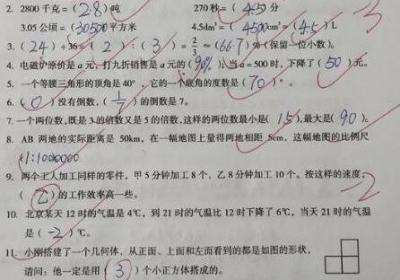 2. 2800千克=(2.8)吨 270秒=(4.5)分
3.05公顷=(30500)平方米 4.5dm³=(4500)cm³=(4.5)L
3. (24)÷36=(2):(3)=2/3≈(66.7)%(保留一位小数)。
4. 电磁炉原价是a元,打九折销售是a元的(90%),当a=500时,下降了(50)元。
5. 一个等腰三角形的顶角是40°,它的一个底角的度数是(70)°。
6. (0)没有倒数,(1/7)的倒数是7。
7. 一个两位数,既是3的倍数又是5的倍数,这样的两位数最小是(15),最大是(90)。
8. AB两地的实际距离是50km,在一幅地图上量得两地相距5cm,这幅地图的比例尺
1:1000000
9. 两个工人加工同样的零件,甲5分钟加工8个,乙8分钟加工10个。按这样的速度,
()的工作效率高一些。
10. 北京某天12时的气温是4℃,到21时的气温比12时下降了6℃,当天21时的气温
是(-2)℃。
11. 小刚搭建了一个几何体,从正面、上面和左面看到的都是如图的形状,
请问:他一定是用(3)个小正方体搭成的。